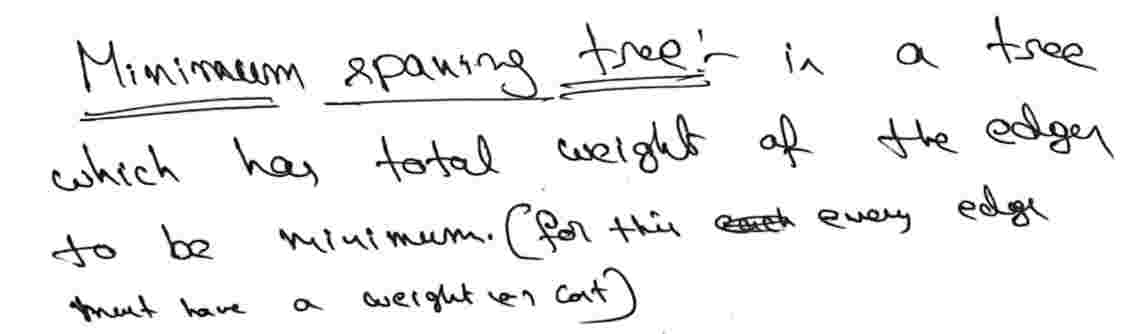 Minimum spaning tree:- in a tree
which has total weight of the edges
to be minimum. (for this each every edge
must have a weight or cost)